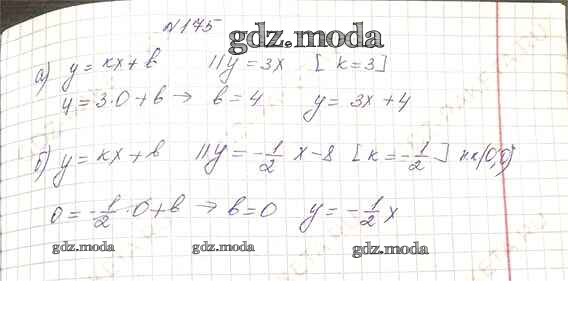 №175
gdz.moda
а) y = kx + b || y = 3x [k = 3]
4 = 3·0 + b → b = 4 y = 3x + 4
б) y = kx + b || y = -1/2 x - 8 [k = -1/2] н.к(0;0)
0 = -1/2·0 + b → b = 0 y = -1/2 x
gdz.moda gdz.moda gdz.moda